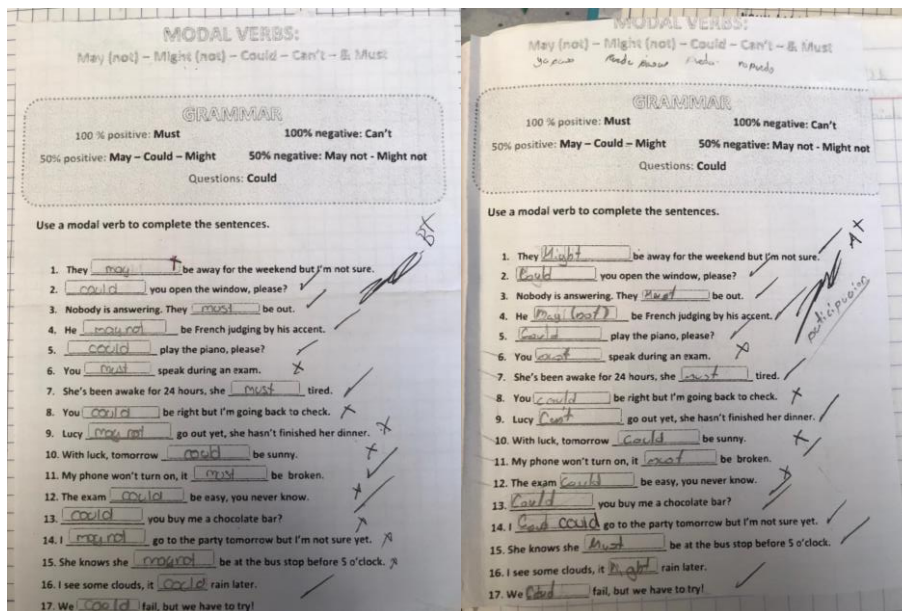 MODAL VERBS:
May (not) – Might (not) – Could – Can't – & Must
GRAMMAR
100 % positive: Must 100% negative: Can't
50% positive: May – Could – Might 50% negative: May not - Might not
Questions: Could
Use a modal verb to complete the sentences.
B+
1. They may be away for the weekend but I'm not sure.
2. could you open the window, please?
3. Nobody is answering. They must be out.
4. He may not be French judging by his accent.
5. could play the piano, please?
6. You must speak during an exam.
7. She's been awake for 24 hours, she must tired.
8. You could be right but I'm going back to check.
9. Lucy may not go out yet, she hasn't finished her dinner.
10. With luck, tomorrow could be sunny.
11. My phone won't turn on, it must be broken.
12. The exam could be easy, you never know.
13. could you buy me a chocolate bar?
14. I may not go to the party tomorrow but I'm not sure yet.
15. She knows she may not be at the bus stop before 5 o'clock.
16. I see some clouds, it could rain later.
17. We could fail, but we have to try!
MODAL VERBS:
May (not) – Might (not) – Could – Can't – & Must
no puedo
GRAMMAR
100 % positive: Must 100% negative: Can't
50% positive: May – Could – Might 50% negative: May not - Might not
Questions: Could
Use a modal verb to complete the sentences.
A+
participacion
1. They Might be away for the weekend but I'm not sure.
2. Could you open the window, please?
3. Nobody is answering. They Must be out.
4. He May (not) be French judging by his accent.
5. Could play the piano, please?
6. You must speak during an exam.
7. She's been awake for 24 hours, she must tired.
8. You could be right but I'm going back to check.
9. Lucy Can't go out yet, she hasn't finished her dinner.
10. With luck, tomorrow Could be sunny.
11. My phone won't turn on, it must be broken.
12. The exam Could be easy, you never know.
13. Could you buy me a chocolate bar?
14. I could go to the party tomorrow but I'm not sure yet.
15. She knows she Must be at the bus stop before 5 o'clock.
16. I see some clouds, it Might rain later.
17. We Could fail, but we have to try!